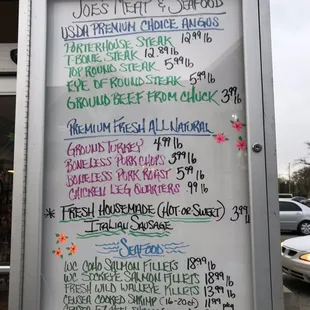 JOES MEAT & SEAFOOD
USDA PREMIUM CHOICE ANGUS
PORTERHOUSE STEAK 12.99 lb
T-BONE STEAK 12.89 lb
TOP ROUND STEAK 5.99 lb
EYE OF ROUND STEAK 5.99 lb
GROUND BEEF FROM CHUCK 3.99 lb
PREMIUM FRESH ALL NATURAL
GROUND TURKEY 4.99 lb
BONELESS PORK CHOPS 3.99 lb
BONELESS PORK ROAST 5.99 lb
CHICKEN LEG QUARTERS .99 lb
* FRESH HOUSEMADE (HOT OR SWEET) 3.99 lb
ITALIAN SAUSAGE
SEAFOOD
WC COHO SALMON FILLETS 18.99 lb
WC SOCKEYE SALMON FILLETS 18.99 lb
FRESH WILD WALLEYE FILLETS 13.99 lb
COOKED SHRIMP (16-20ct) 11.99